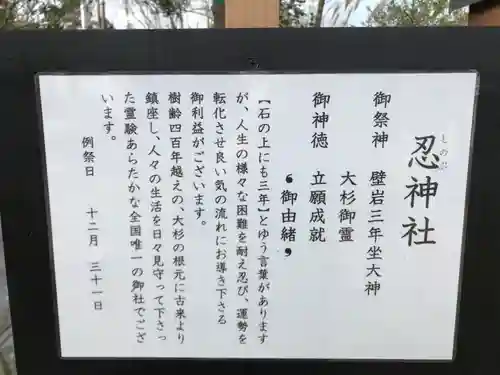 忍神社
しのび
御祭神 壁岩三年坐大神
大杉御霊
御神徳 立願成就
❛御由緒❜
【石の上にも三年】とゆう言葉があります
が、人生の様々な困難を耐え忍び、運勢を
転化させ良い気の流れにお導き下さる
御利益がございます。
樹齢四百年越えの、大杉の根元に古来より
鎮座し、人々の生活を日々見守って下さっ
た霊験あらたかな全国唯一の御社でござ
います。
例祭日 十二月 三十一日